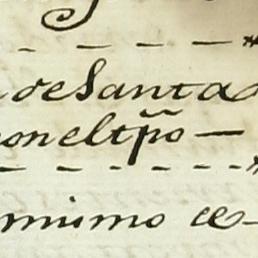 de Santa
con el tp̃o —
mismo ce